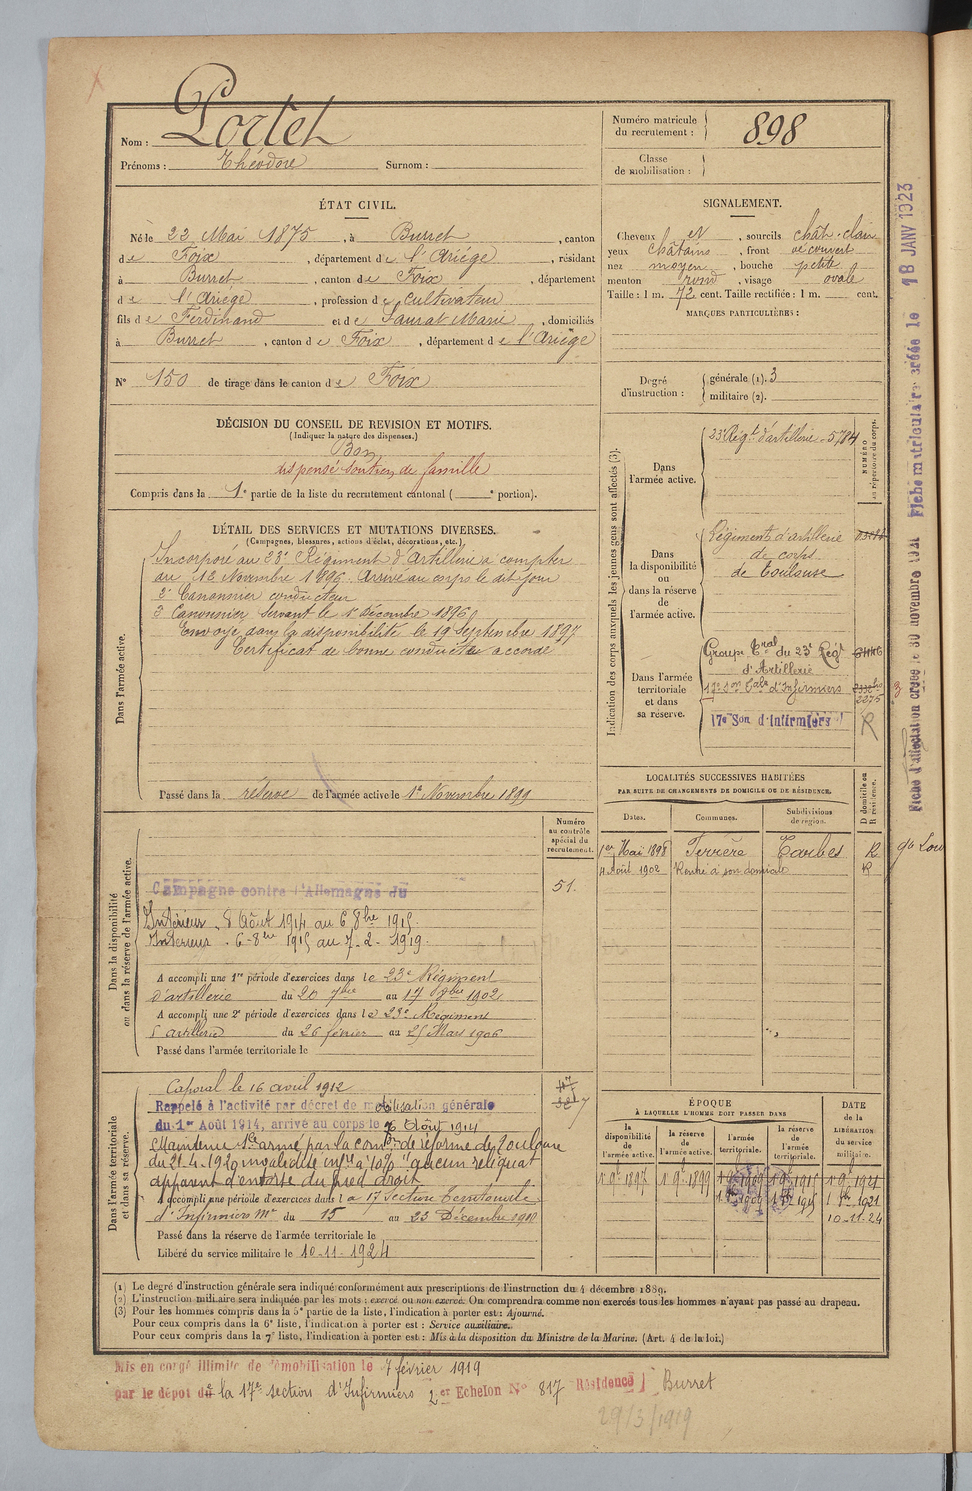 Nom : Portet
Prénoms : Théodore Surnom :
Numéro matricule du recrutement : 898
Classe de mobilisation :
ÉTAT CIVIL.
Né le 22 Mai 1875, à Burret, canton
de Foix, département de l'Ariège, résidant
à Burret, canton de Foix, département
de l'Ariège, profession de cultivateur
fils de Ferdinand et de Saurat Marie, domiciliés
à Burret, canton de Foix, département de l'Ariège
N° 150 de tirage dans le canton de Foix
SIGNALEMENT.
Cheveux et, sourcils chât. clair
yeux châtains, front découvert
nez moyen, bouche petite
menton rond, visage ovale
Taille : 1 m. 72 cent. Taille rectifiée : 1 m. cent.
MARQUES PARTICULIÈRES :
Degré d'instruction : générale (1). 3
militaire (2).
DÉCISION DU CONSEIL DE REVISION ET MOTIFS.
(Indiquer la nature des dispenses.)
Bon
dispensé soutien de famille
Compris dans la 1e partie de la liste du recrutement cantonal ( e portion).
DÉTAIL DES SERVICES ET MUTATIONS DIVERSES.
(Campagnes, blessures, actions d'éclat, décorations, etc.)
Dans l'armée active.
Incorporé au 23e Régiment d'Artillerie à compter
du 12 Novembre 1896. Arrivé au corps le dit jour
2e Canonnier conducteur
2 Canonnier Servant le 1er Décembre 1896
Envoyé dans la disponibilité le 19 Septembre 1897
Certificat de bonne conduite accordé
Passé dans la réserve de l'armée active le 1er Novembre 1899
Indication des corps auxquels les jeunes gens sont affectés (3).
NUMÉRO au répertoire du corps.
Dans l'armée active.
23e Régt d'artillerie 5784
Dans la disponibilité ou dans la réserve de l'armée active.
Régiment d'artillerie
de corps
de Toulouse
Dans l'armée territoriale et dans sa réserve.
Groupe Tral du 23e Régt
d'Artillerie
17e Son Tale d'Infirmiers 2275
17e Son d'Infirmiers R
LOCALITÉS SUCCESSIVES HABITÉES
PAR SUITE DE CHANGEMENTS DE DOMICILE OU DE RÉSIDENCE.
D domicile ou R résidence.
Dates. Communes. Subdivisions de région.
1er Mai 1898 Ferrère Tarbes R
4 Août 1902 Rentré à son domicile R
Dans la disponibilité ou dans la réserve de l'armée active.
Numéro au contrôle spécial du recrutement.
51.
Campagne contre l'Allemagne du
Intérieur. 8 Août 1914 au 6 8bre 1915
Intérieur. 6-8bre 1915 au 7-2-1919.
A accompli une 1re période d'exercices dans le 23e Régiment
d'artillerie du 20 7bre au 17 8bre 1902
A accompli une 2e période d'exercices dans le 23e Régiment
d'artillerie du 26 février au 25 Mars 1906
Passé dans l'armée territoriale le
Dans l'armée territoriale et dans sa réserve.
Caporal le 16 avril 1912
Rappelé à l'activité par décret de mobilisation générale
du 1er Août 1914, arrivé au corps le 8 Août 1914
Maintenu Sce armé par la comon de réforme de Toulouse
du 21.4.1920 invalidité infre à 10% "aucun reliquat
apparent d'entorse du pied droit
A accompli une période d'exercices dans la 17 Section Territoriale
d'Infirmiers Mre du 15 au 23 Décembre 1910
Passé dans la réserve de l'armée territoriale le
Libéré du service militaire le 10-11-1924
ÉPOQUE
À LAQUELLE L'HOMME DOIT PASSER DANS
DATE de la LIBÉRATION du service militaire.
la disponibilité de l'armée active. la réserve de l'armée active. l'armée territoriale. la réserve de l'armée territoriale.
1 9e 1897 1 9e 1899 1 9e 1909 1 9e 1915 1 9e 1921
1 8bre 1909 1 8bre 1915 1 8bre 1921
10-11-24
(1) Le degré d'instruction générale sera indiqué conformément aux prescriptions de l'instruction du 4 décembre 1889.
(2) L'instruction militaire sera indiquée par les mots : exercé ou non exercé. On comprendra comme non exercés tous les hommes n'ayant pas passé au drapeau.
(3) Pour les hommes compris dans la 5e partie de la liste, l'indication à porter est : Ajourné.
Pour ceux compris dans la 6e liste, l'indication à porter est : Service auxiliaire.
Pour ceux compris dans la 7e liste, l'indication à porter est : Mis à la disposition du Ministre de la Marine. (Art. 4 de la loi.)
Mis en congé illimité de démobilisation le 7 février 1919
par le dépôt de la 17e section d'Infirmiers 2er Echelon N° 817 Résidence Burret
29/3/1919
Fiche matriculaire créée le 18 JANV 1923
Fiche d'affectation créée le 30 novembre 1921